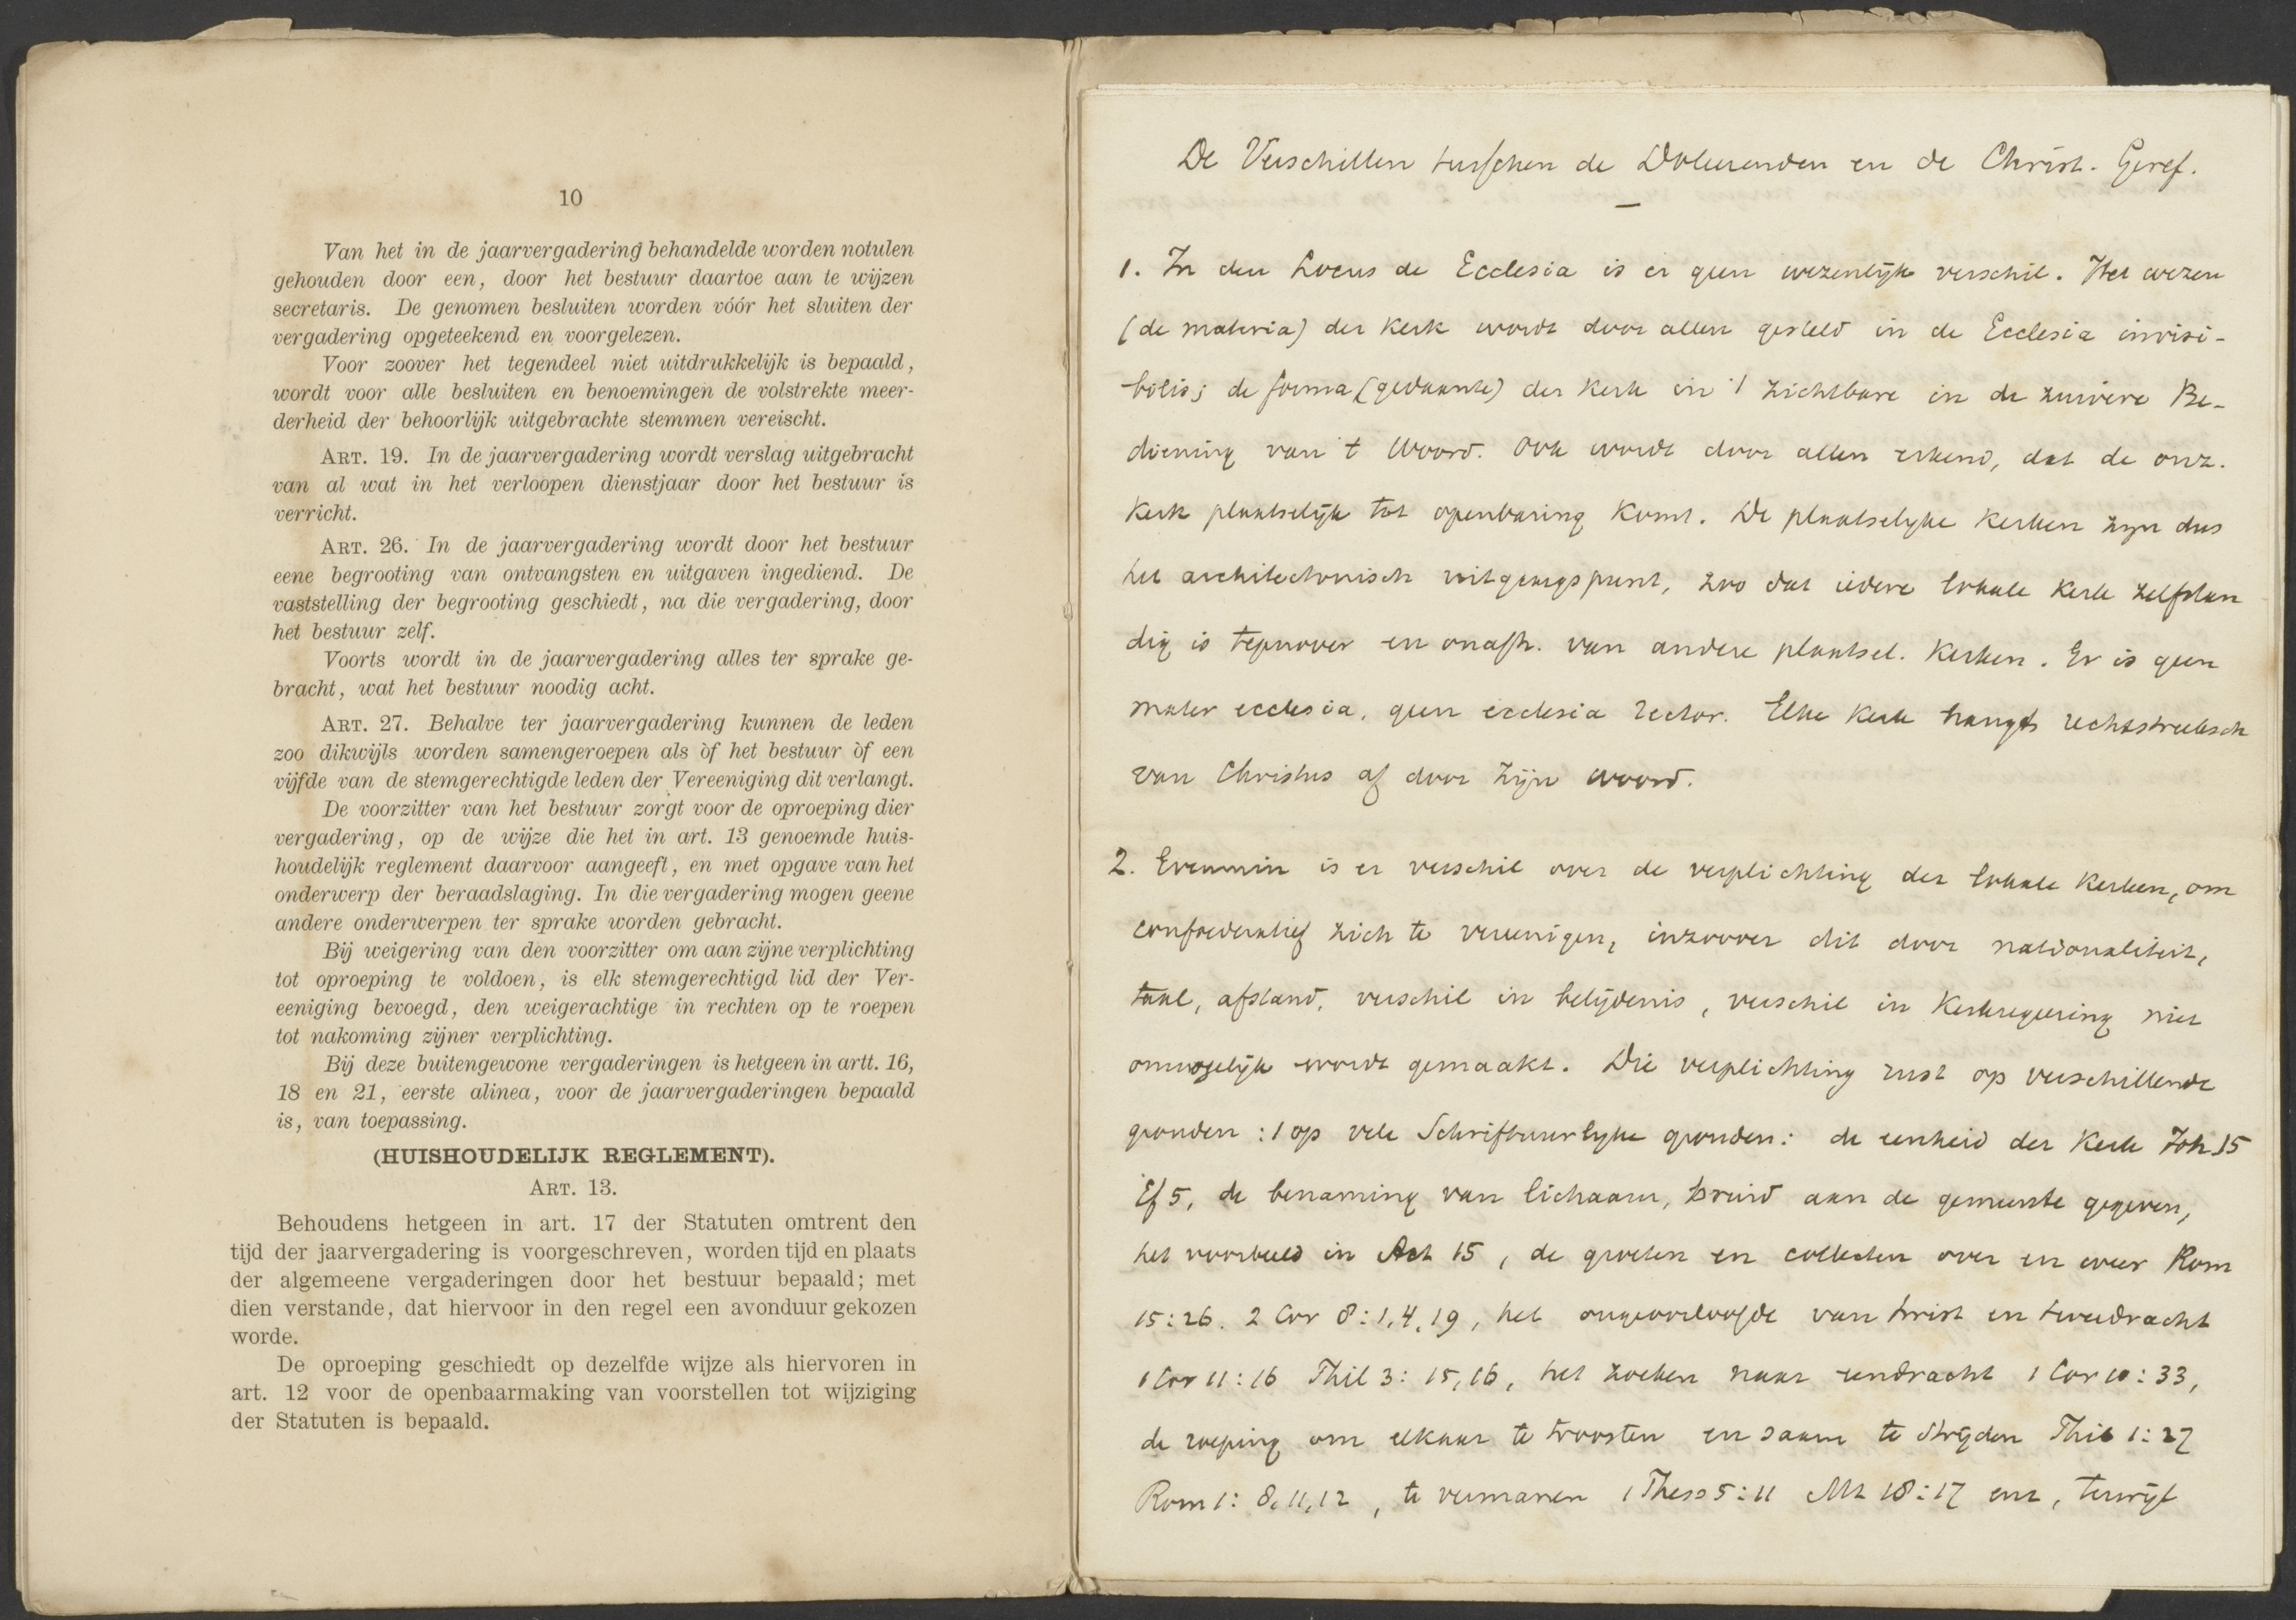 10
Van het in de jaarvergadering behandelde worden notulen
gehouden door een, door het bestuur daartoe aan te wijzen
secretaris. De genomen besluiten worden vóór het sluiten der
vergadering opgeteekend en voorgelezen.
Voor zoover het tegendeel niet uitdrukkelijk is bepaald,
wordt voor alle besluiten en benoemingen de volstrekte meer-
derheid der behoorlijk uitgebrachte stemmen vereischt.
ART. 19. In de jaarvergadering wordt verslag uitgebracht
van al wat in het verloopen dienstjaar door het bestuur is
verricht.
ART. 26. In de jaarvergadering wordt door het bestuur
eene begrooting van ontvangsten en uitgaven ingediend. De
vaststelling der begrooting geschiedt, na die vergadering, door
het bestuur zelf.
Voorts wordt in de jaarvergadering alles ter sprake ge-
bracht, wat het bestuur noodig acht.
ART. 27. Behalve ter jaarvergadering kunnen de leden
zoo dikwijls worden samengeroepen als òf het bestuur òf een
vijfde van de stemgerechtigde leden der Vereeniging dit verlangt.
De voorzitter van het bestuur zorgt voor de oproeping dier
vergadering, op de wijze die het in art. 13 genoemde huis-
houdelijk reglement daarvoor aangeeft, en met opgave van het
onderwerp der beraadslaging. In die vergadering mogen geene
andere onderwerpen ter sprake worden gebracht.
Bij weigering van den voorzitter om aan zijne verplichting
tot oproeping te voldoen, is elk stemgerechtigd lid der Ver-
eeniging bevoegd, den weigerachtige in rechten op te roepen
tot nakoming zijner verplichting.
Bij deze buitengewone vergaderingen is hetgeen in artt. 16,
18 en 21, eerste alinea, voor de jaarvergaderingen bepaald
is, van toepassing.
(HUISHOUDELIJK REGLEMENT).
ART. 13.
Behoudens hetgeen in art. 17 der Statuten omtrent den
tijd der jaarvergadering is voorgeschreven, worden tijd en plaats
der algemeene vergaderingen door het bestuur bepaald; met
dien verstande, dat hiervoor in den regel een avonduur gekozen
worde.
De oproeping geschiedt op dezelfde wijze als hiervoren in
art. 12 voor de openbaarmaking van voorstellen tot wijziging
der Statuten is bepaald.
De Verschillen tusschen de Doleerenden en de Christ. Geref.
1. In den Locus de Ecclesia is er geen wezenlijk verschil. Het wezen
(de materia) der Kerk wordt door allen gesteld in de Ecclesia invisi-
bilis; de forma (gedaante) der Kerk in 't zichtbare in de zuivere Be-
diening van 't Woord. Ook wordt door allen erkend, dat de onz.
Kerk plaatselijk tot openbaring komt. De plaatselyke Kerken zyn dus
het architectonisch uitgangspunt, zoo dat iedere lokale Kerk zelfstan
dig is tegenover en onafh. van andere plaatsel. Kerken. Er is geen
mater ecclesia, geen ecclesia rector. Elke Kerk hangt rechtstreeksch
van Christus af door Zijn woord.
2. Evenmin is er verschil over de verplichting der lokale Kerken, om
confoederatief zich te vereenigen, inzoover dit door nationaliteit,
taal, afstand, verschil in belijdenis, verschil in Kerkregeering niet
onmogelijk wordt gemaakt. Die verplichting rust op verschillende
gronden: 1 op vele Schriftuurlyke gronden: de eenheid der Kerk Joh 15
Ef 5, de benaming van lichaam, bruid aan de gemeente gegeven,
het voorbeeld in Act 15, de groeten en collecten over en weer Rom
15:26. 2 Cor 8:1,4,19, het ongeoorloofde van twist en tweedracht
1 Cor 11:16 Phil 3:15,16, het zoeken naar eendracht 1 Cor 10:33,
de roeping om elkaar te troosten en saam te strijden Phil 1:27
Rom 1:8,11,12, te vermanen 1 Thess 5:11 Mt 18:17 enz, terwijl